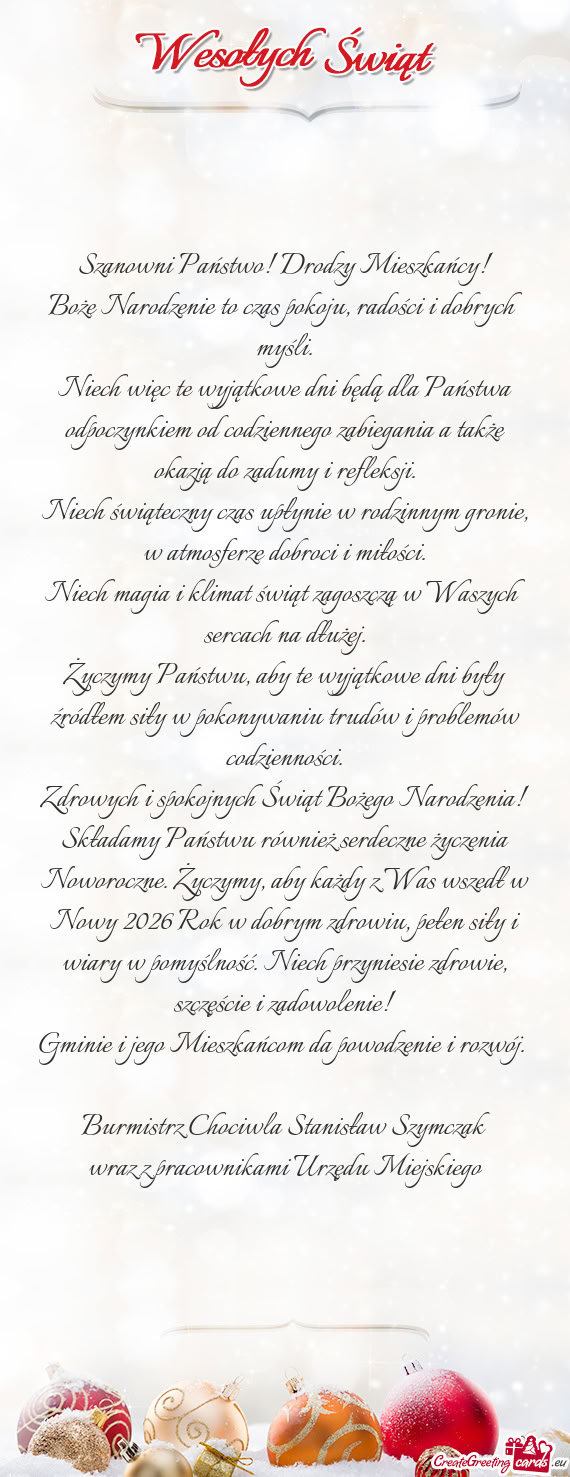 Wesołych Świąt
Szanowni Państwo! Drodzy Mieszkańcy!
Boże Narodzenie to czas pokoju, radości i dobrych
myśli.
Niech więc te wyjątkowe dni będą dla Państwa
odpoczynkiem od codziennego zabiegania a także
okazją do zadumy i refleksji.
Niech świąteczny czas upłynie w rodzinnym gronie,
w atmosferze dobroci i miłości.
Niech magia i klimat świąt zagoszczą w Waszych
sercach na dłużej.
Życzymy Państwu, aby te wyjątkowe dni były
źródłem siły w pokonywaniu trudów i problemów
codzienności.
Zdrowych i spokojnych Świąt Bożego Narodzenia!
Składamy Państwu również serdeczne życzenia
Noworoczne. Życzymy, aby każdy z Was wszedł w
Nowy 2026 Rok w dobrym zdrowiu, pełen siły i
wiary w pomyślność. Niech przyniesie zdrowie,
szczęście i zadowolenie!
Gminie i jego Mieszkańcom da powodzenie i rozwój.
Burmistrz Chociwla Stanisław Szymczak
wraz z pracownikami Urzędu Miejskiego
CreateGreeting cards .eu